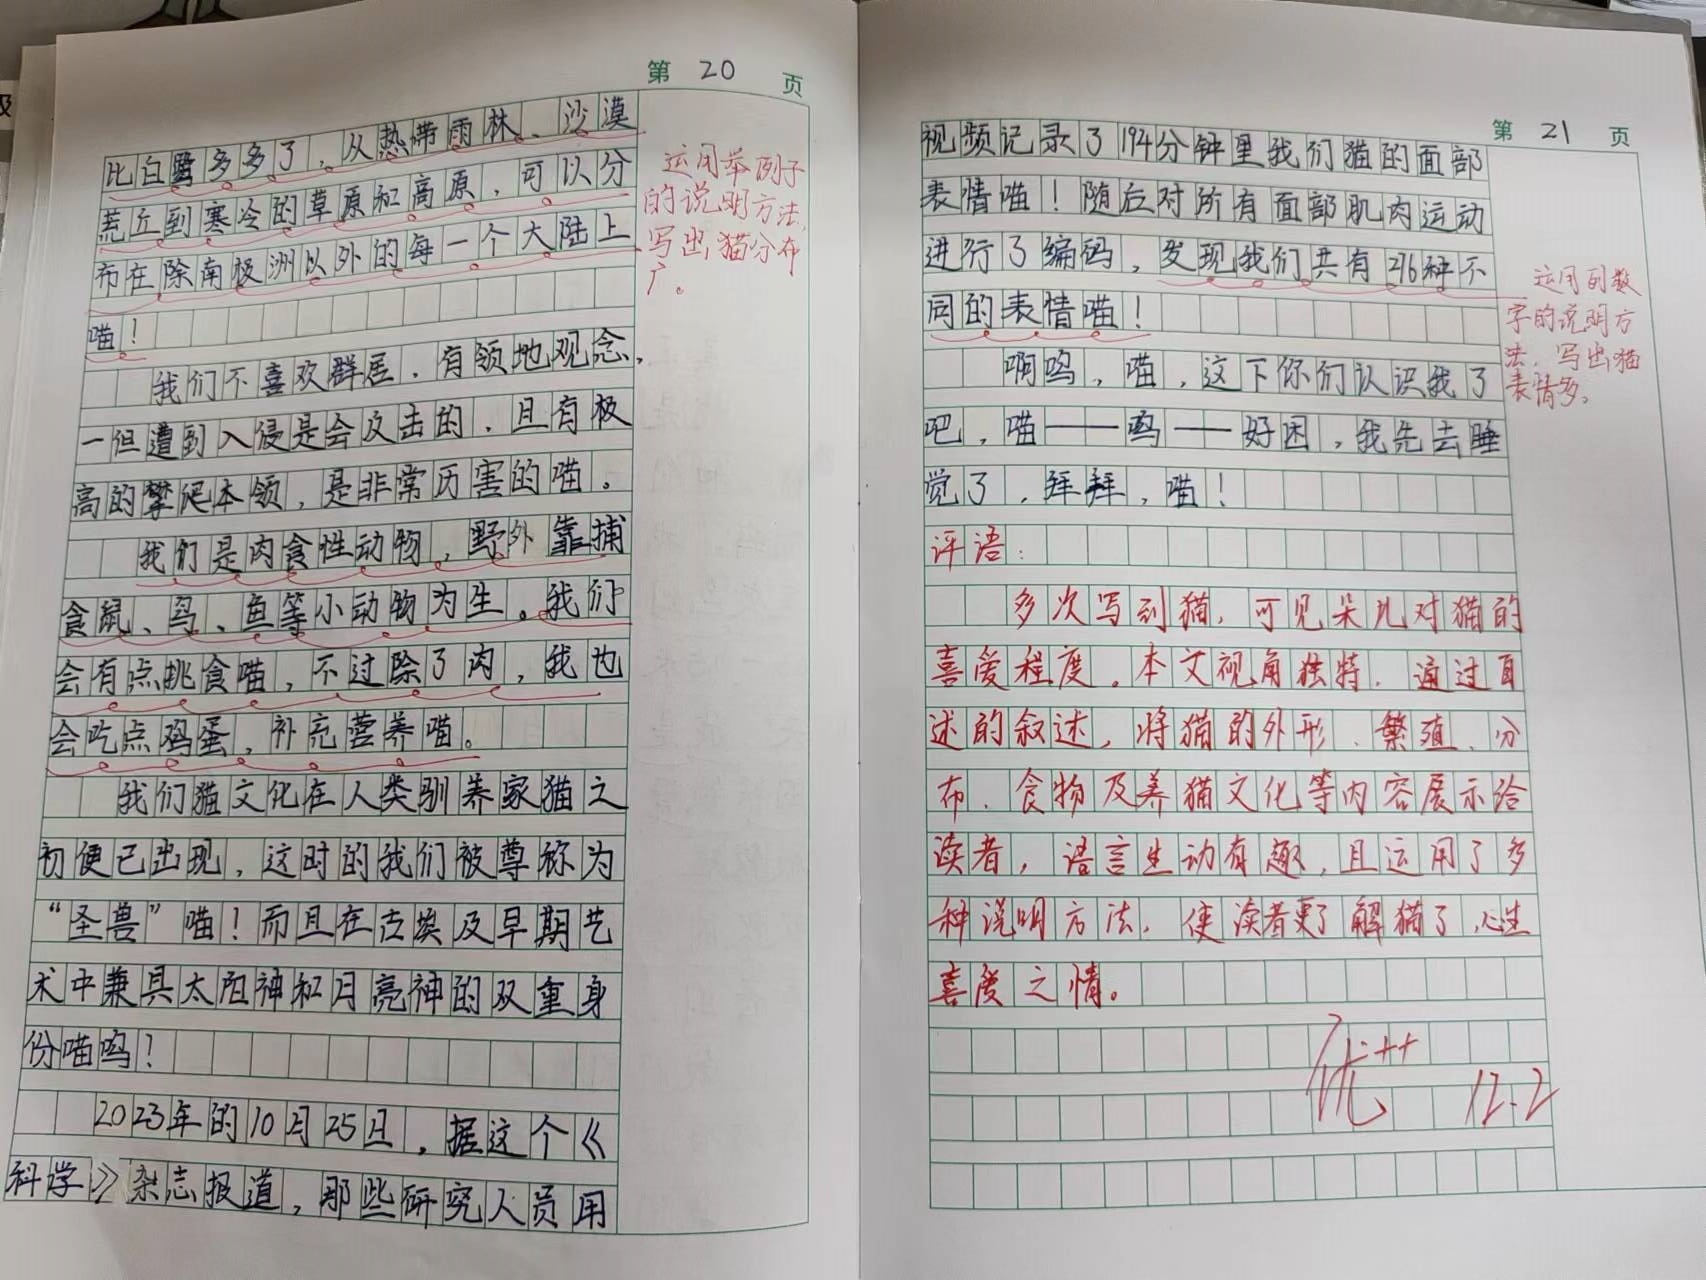 第 20 页
比白鹭多多了，从热带雨林、沙漠
荒丘到寒冷的草原和高原，可以分
布在除南极洲以外的每一个大陆上
喵！
我们不喜欢群居，有领地观念，
一但遭到入侵是会反击的，且有极
高的攀爬本领，是非常历害的喵。
我们是肉食性动物，野外靠捕
食鼠、鸟、鱼等小动物为生。我们
会有点挑食喵，不过除了肉，我也
会吃点鸡蛋，补充营养喵。
我们猫文化在人类驯养家猫之
初便已出现，这时的我们被尊称为
“圣兽”喵！而且在古埃及早期艺
术中兼具太阳神和月亮神的双重身
份喵呜！
2023年的10月25日，据这个《
科学》杂志报道，那些研究人员用
运用举例子
的说明方法，
写出猫分布
广。
第 21 页
视频记录了194分钟里我们猫的面部
表情喵！随后对所有面部肌肉运动
进行了编码，发现我们共有276种不
同的表情喵！
啊呜，喵，这下你们认识我了
吧，喵——呜——好困，我先去睡
觉了，拜拜，喵！
运用列数
字的说明方
法，写出猫
表情多。
评语：
多次写到猫，可见朵儿对猫的
喜爱程度。本文视角独特，通过自
述的叙述，将猫的外形、繁殖、分
布、食物及养猫文化等内容展示给
读者，语言生动有趣，且运用了多
种说明方法，使读者更了解猫了，心生
喜爱之情。
优++
12.2